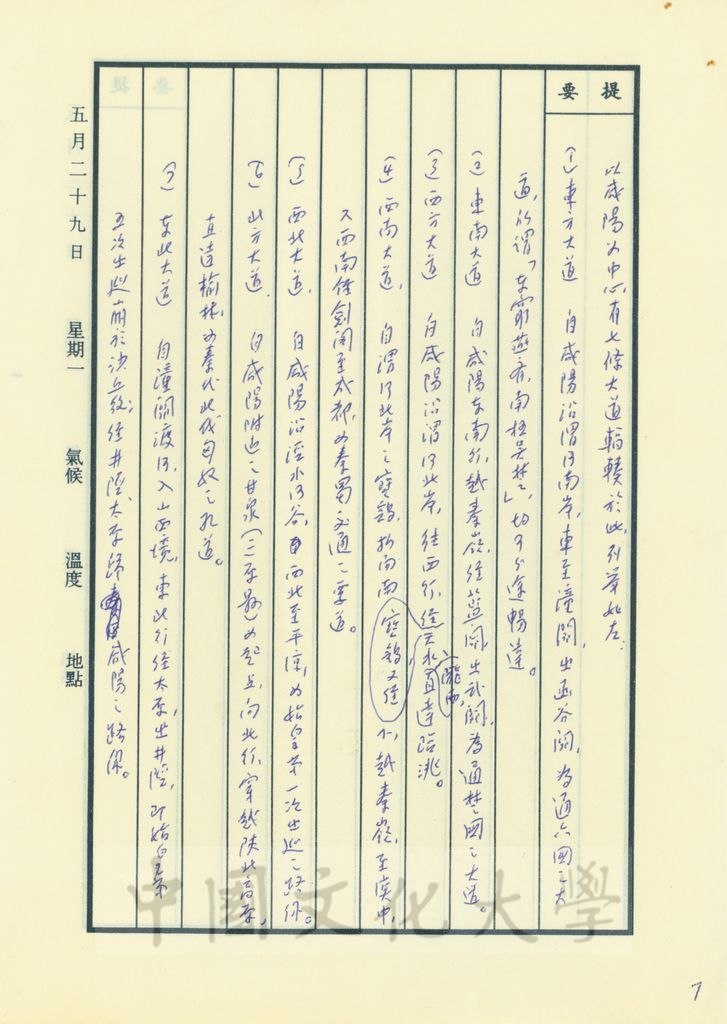 提要
以咸陽為中心，有七條大道輻輳於此，列舉如左：
(1) 東方大道 自咸陽沿渭河南岸，東至潼關，出函谷關，為通六國之大
道，所謂「東窮燕齊，南極吳楚」，均可分途暢達。
(2) 東南大道 自咸陽東南行，越秦嶺，經藍關，出武關，為通楚國之大道。
(3) 西方大道 自咸陽沿渭河北岸，往西行，經天水、隴西，直達臨洮。
(4) 西南大道， 自渭河北岸之寶鷄，折向南，寶鷄又經 越秦嶺，至漢中，
又西南經劍閣至成都，為秦蜀交通之要道。
(5) 西北大道， 自咸陽沿涇水河谷，西北至平涼，為始皇第一次出巡之路線。
(6) 北方大道， 自咸陽附近之甘泉(三原縣)為起点，向北行，穿越陝北高原，
直達榆林，為秦代北伐匈奴之孔道。
(7) 東北大道 自潼關渡河，入山西境，東北行經太原，出井陘，即始皇第
五次出巡崩於沙丘後，經井陘、太原歸咸陽之路線。
五月二十九日 星期一 氣候 溫度 地點
中國文化大學
7